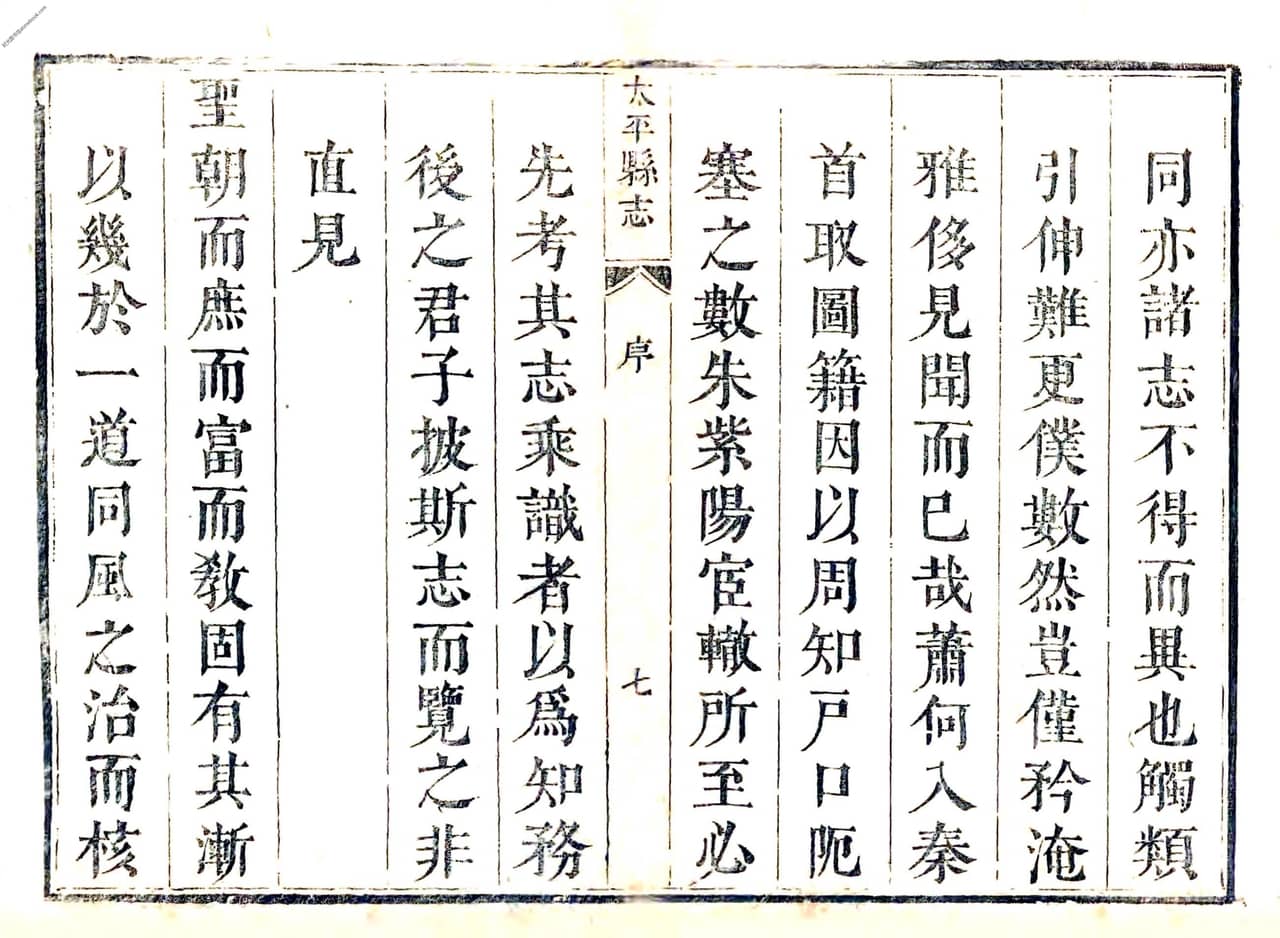 同亦諸志不得而異也觸類
引伸難更僕數然豈僅矜淹
雅侈見聞而已哉蕭何入秦
首取圖籍因以周知戸口阨
塞之數朱紫陽宦轍所至必
太平縣志 序 七
先考其志乘識者以爲知務
後之君子披斯志而覽之非
直見
聖朝而庶而富而敎固有其漸
以幾於一道同風之治而核